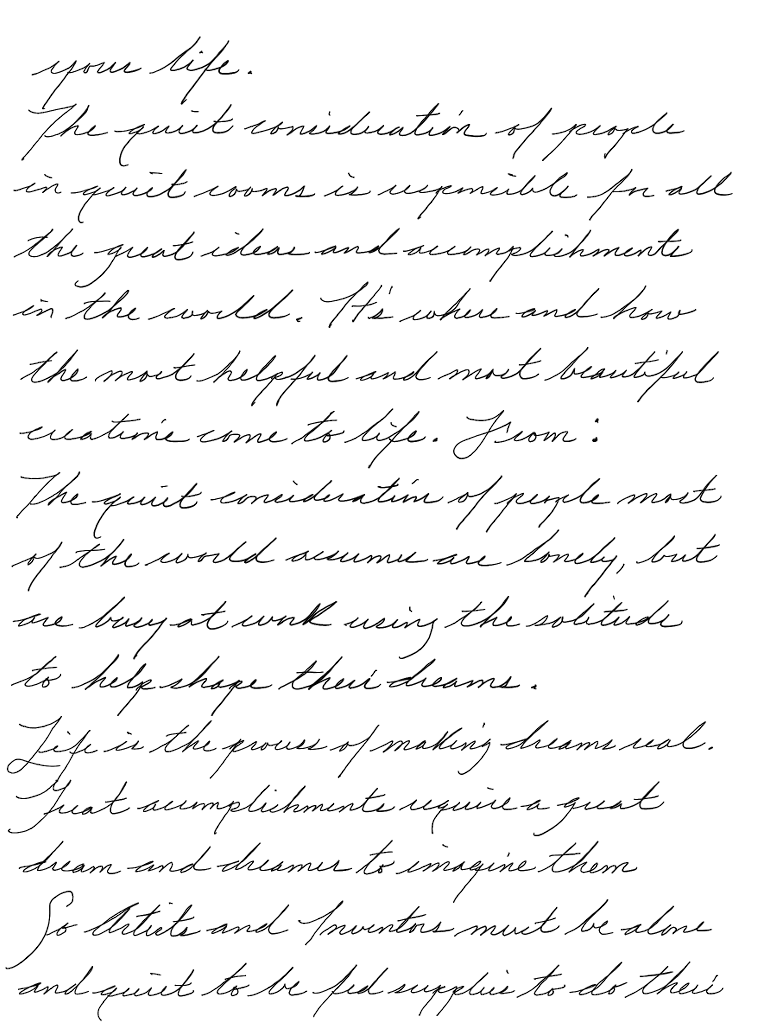 your life.
The quiet consideration of people
in quiet rooms is responsible for all
the great ideas and accomplishments
in the world. It's where and how
the most helpful and most beautiful
creations come to life. From:
The quiet consideration of people most
of the world assumes are lonely, but
are busy at work using the solitude
to help shape their dreams.
Life is the process of making dreams real.
Great accomplishments require a great
dream and dreamer to imagine them
So Artists and Inventors must be alone
and quiet to be fed supplies to do their